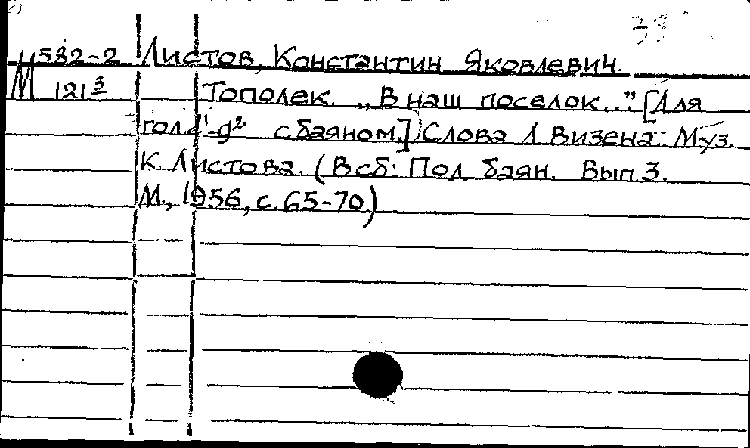 М 532-2 Листов, Константин Яковлевич.
М 121 3 Тополек. „В наш поселок..." [Для
гол. d¹-g² с баяном.] Слова Л. Визена. Муз.
К. Листова. (В сб: Под баян. Вып 3.
М., 1956, с. 65-70)